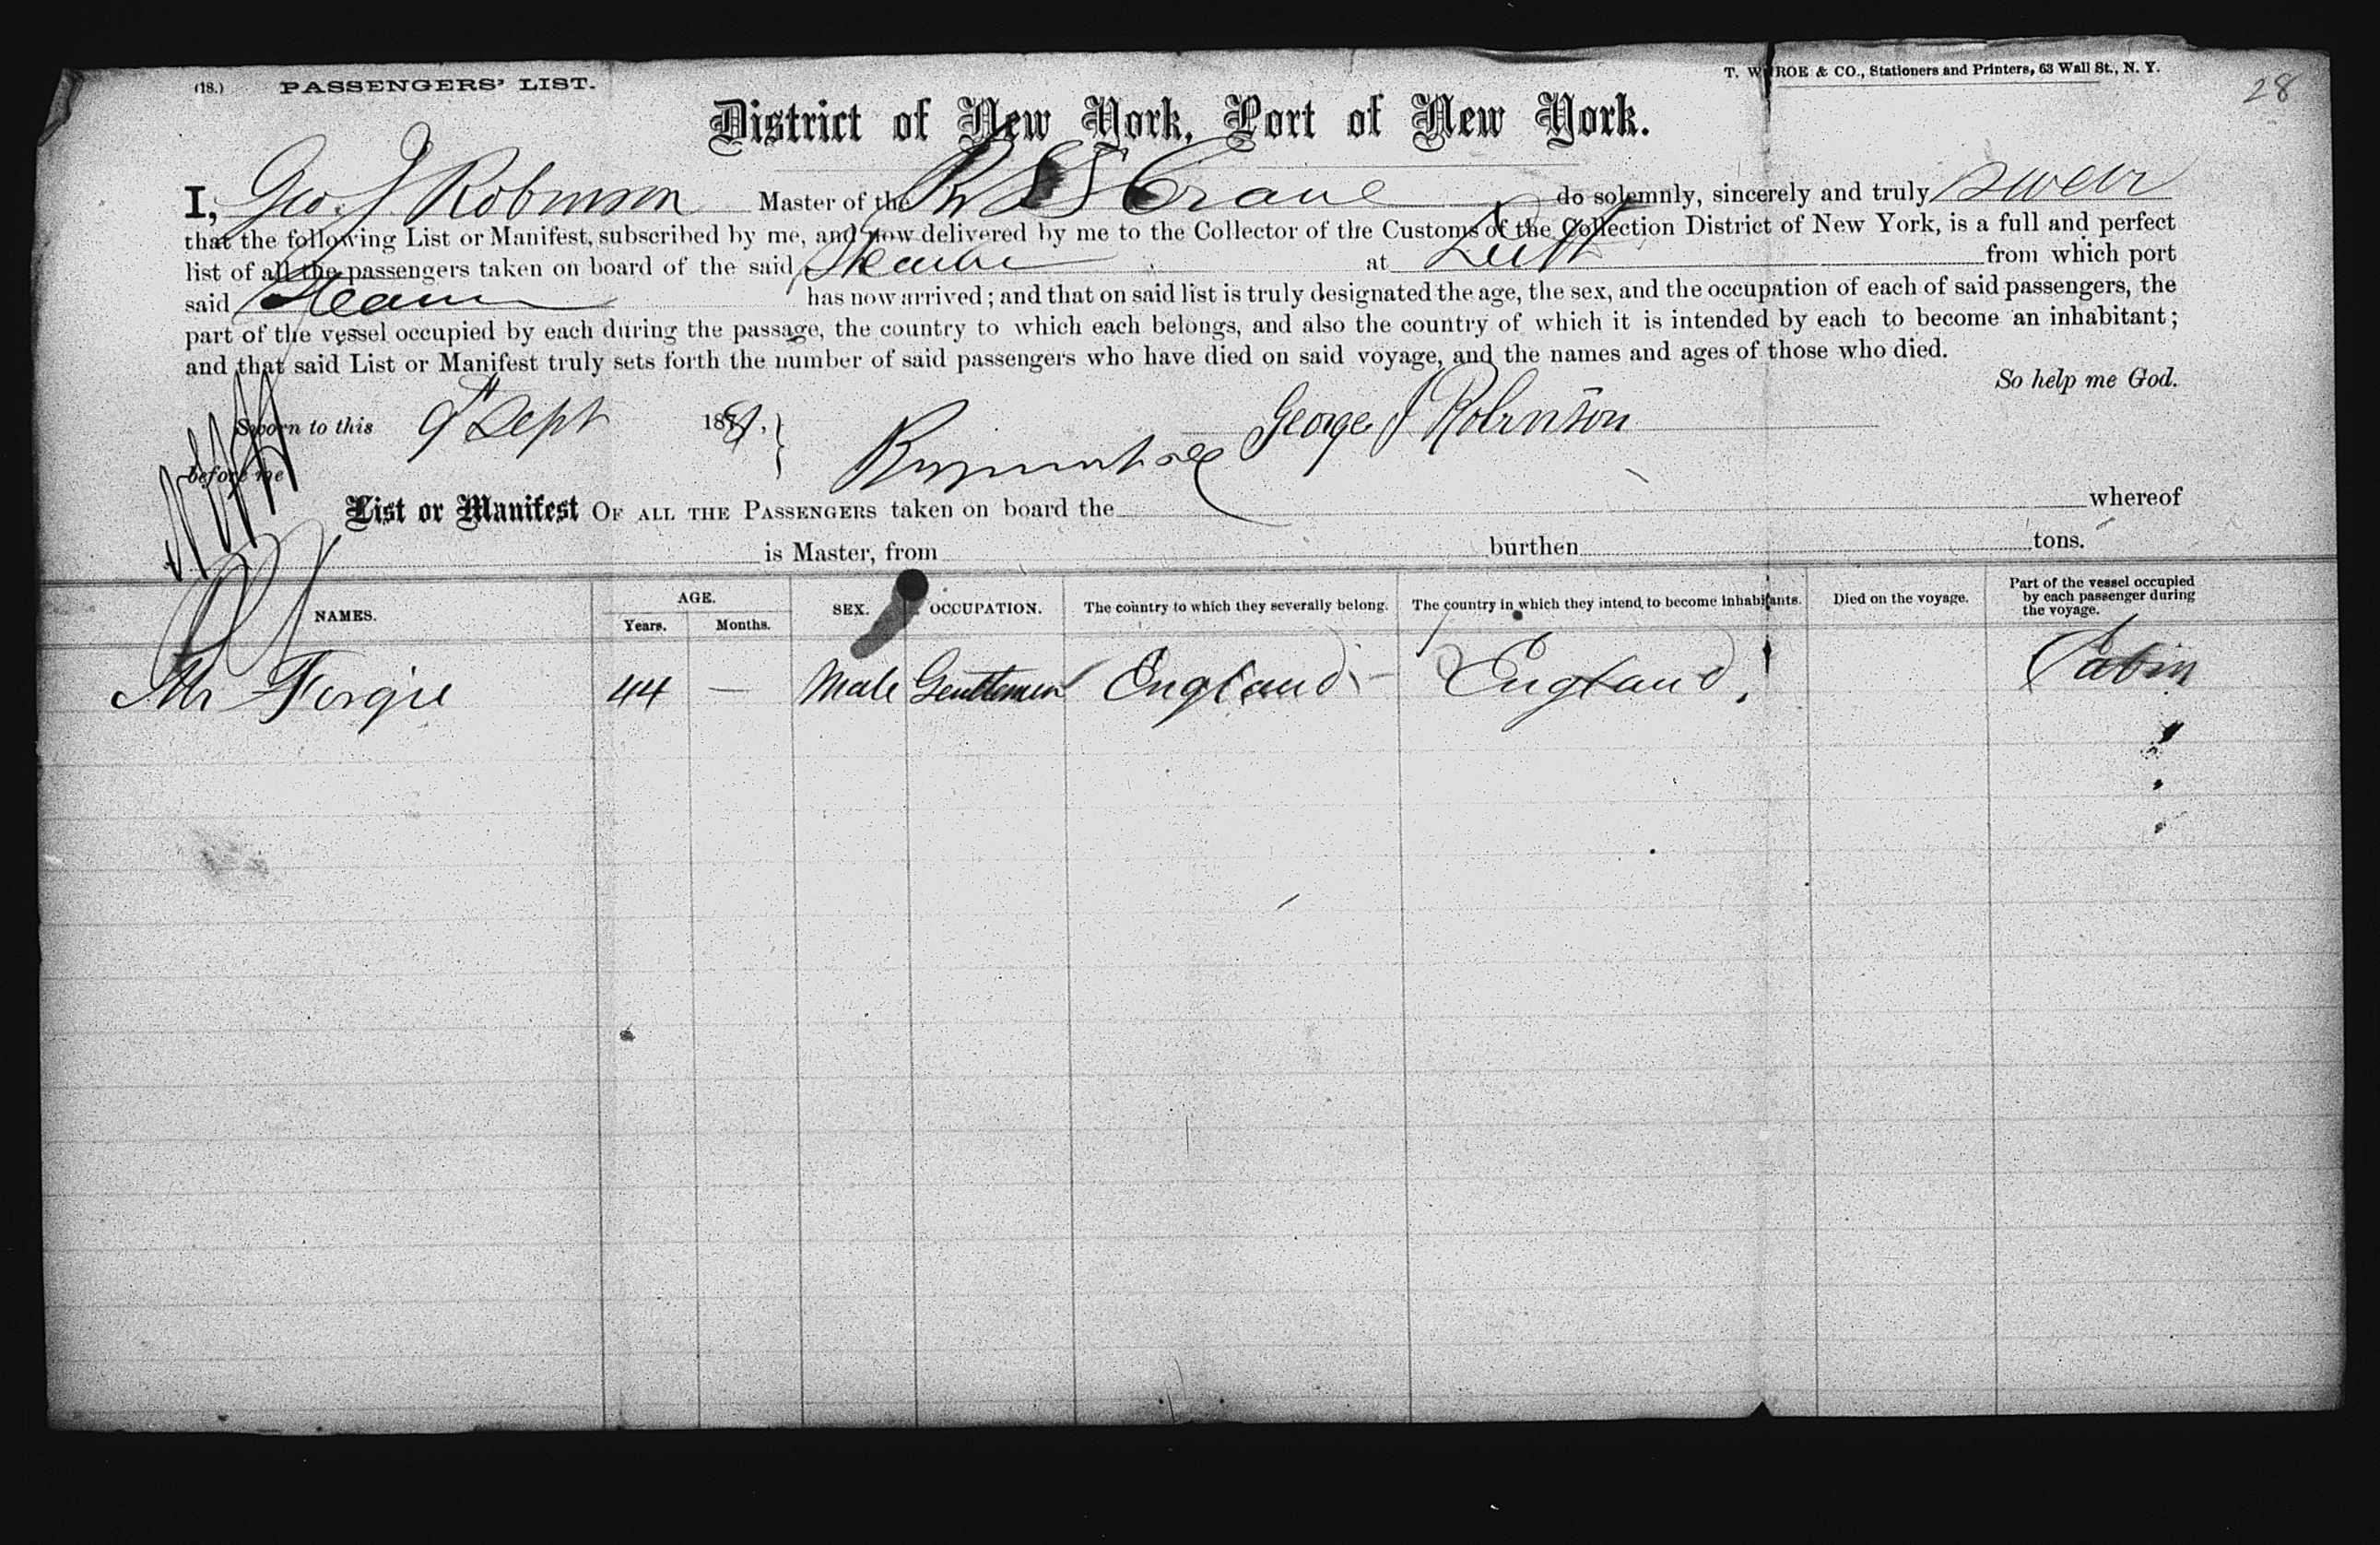 (18.) PASSENGERS' LIST.
T. W ROE & CO., Stationers and Printers, 63 Wall St., N. Y.
28
District of New York, Port of New York.
I, Geo. J Robinson Master of the Br SS Crane do solemnly, sincerely and truly swear
that the following List or Manifest, subscribed by me, and now delivered by me to the Collector of the Customs of the Collection District of New York, is a full and perfect
list of all the passengers taken on board of the said Steamer at Leith from which port
said Steamer has now arrived; and that on said list is truly designated the age, the sex, and the occupation of each of said passengers, the
part of the vessel occupied by each during the passage, the country to which each belongs, and also the country of which it is intended by each to become an inhabitant;
and that said List or Manifest truly sets forth the number of said passengers who have died on said voyage, and the names and ages of those who died.
So help me God.
Sworn to this 9 Sept 188 . George J Robinson
before me
List or Manifest OF ALL THE PASSENGERS taken on board the whereof
is Master, from burthen tons.
NAMES. AGE. Years. Months. SEX. OCCUPATION. The country to which they severally belong. The country in which they intend to become inhabitants. Died on the voyage. Part of the vessel occupied by each passenger during the voyage.
Mr Forgie 44 — Male Gentleman England - England. Cabin